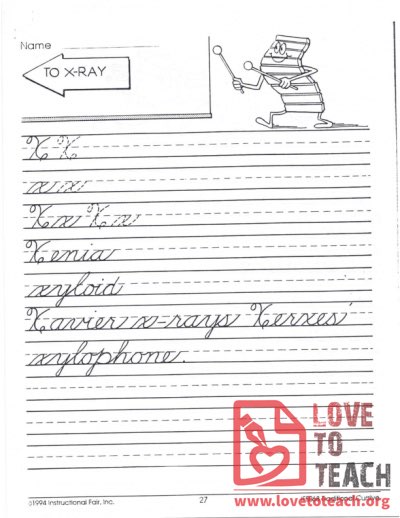 Name
TO X-RAY
X X
x x
X x X x
Xenia
xyloid
Xavier x-rays Xerxes'
xylophone.
LOVE
TO
TEACH
www.lovetoteach.org
©1994 Instructional Fair, Inc.
27